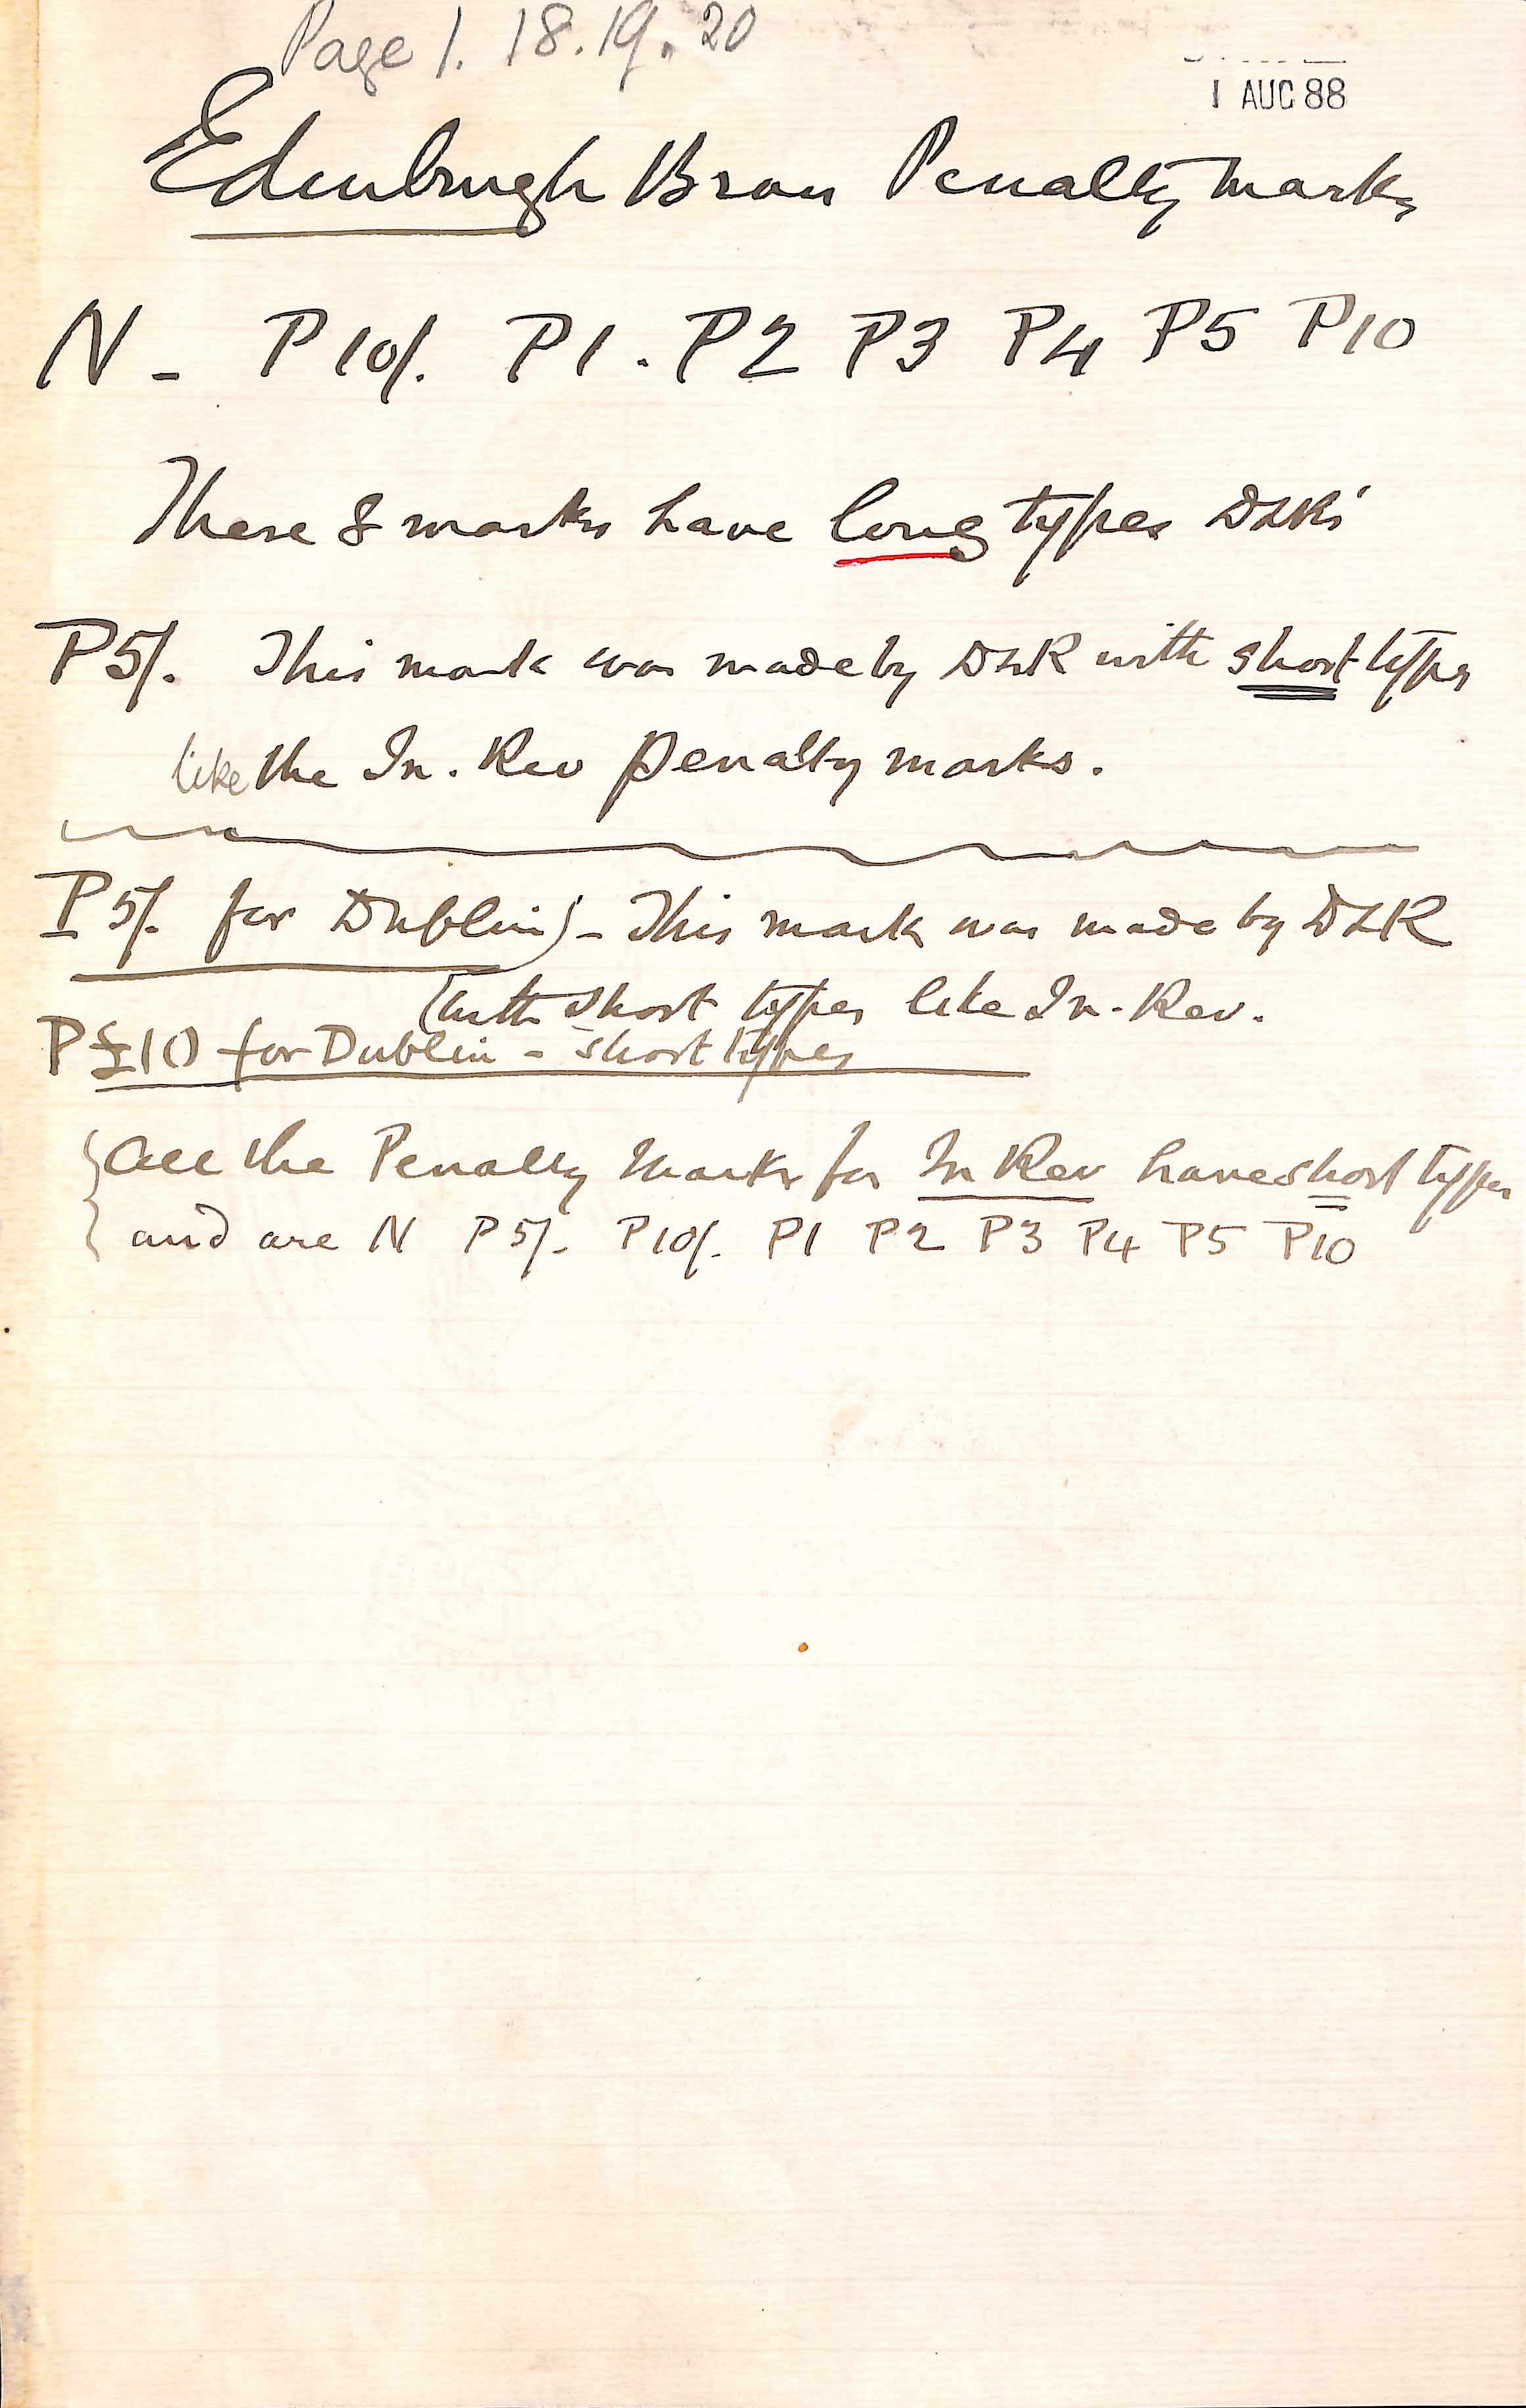 Page 1. 18. 19. 20
1 AUG 88
Edinburgh Bran Penalty Marks
N - P 10/. P1. P2 P3 P4 P5 P10
These 8 marks have long types DLR's
P5/. This mark was made by DLR with short types
like the In. Rev Penalty marks.
P 5/. for Dublin) - This mark was made by DLR
(with short types like In-Rev.
P £10 for Dublin - short types
{All the Penalty Marks for In Rev have short types
{and are N P 5/- P10/- P1 P2 P3 P4 P5 P10